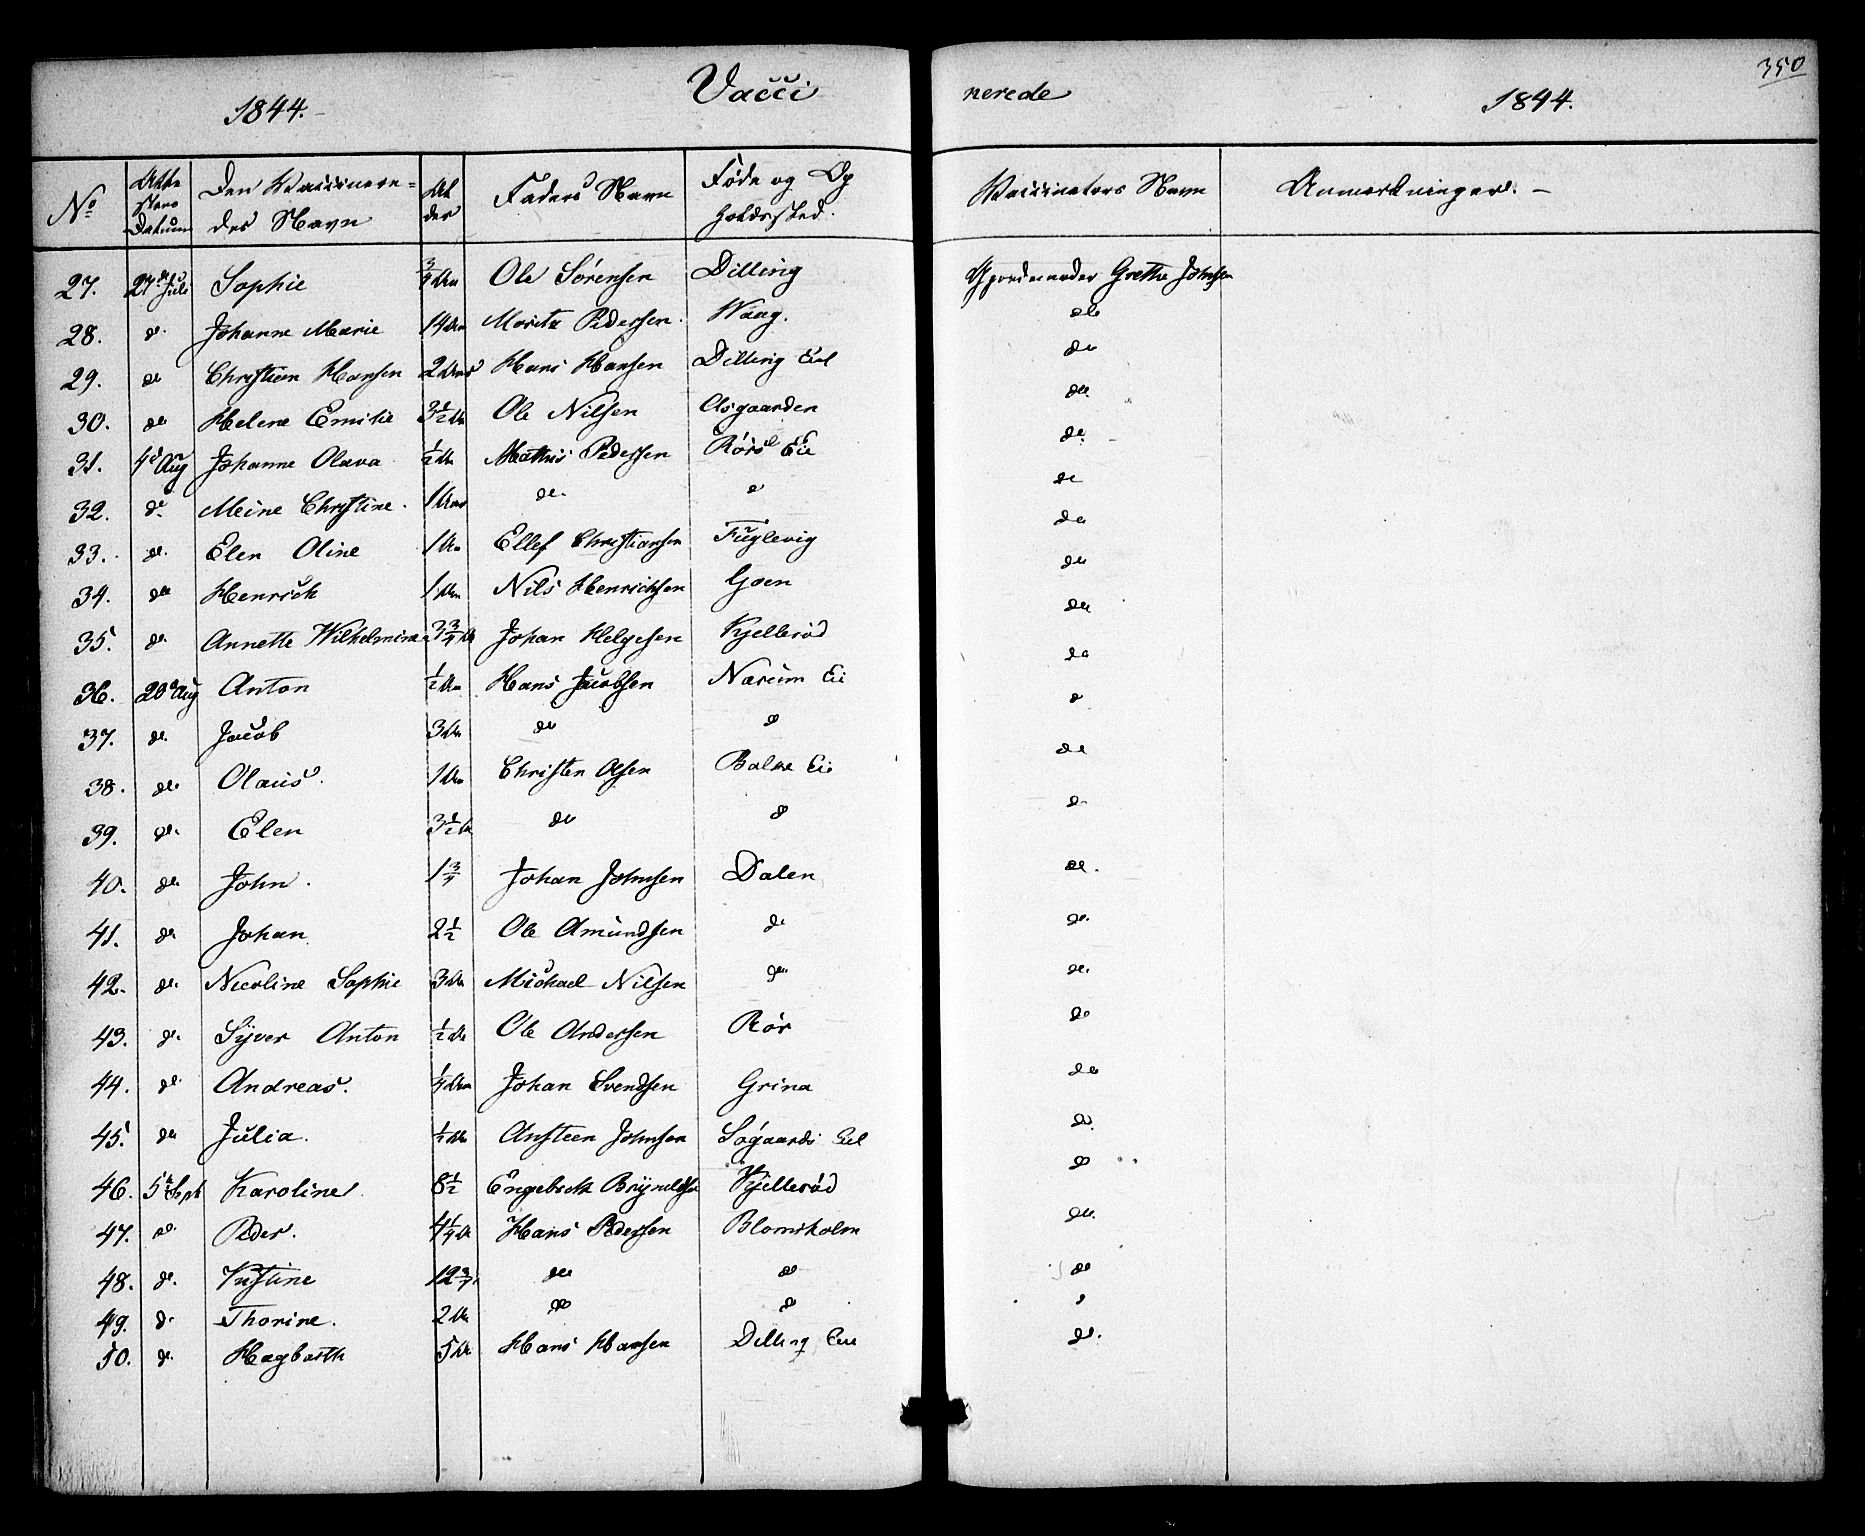 350
1844. Vacci nerede 1844.
No Attestens Datum Den Vaccineredes Navn Alder Faders Navn Føde og Opholdssted. Vaccinators Navn Anmærkninger. —
27. 27de Juli Sophie 3/4 Aar Ole Sörensen Dilling Gjordemoder Grethe Johnsen
28. do Johanne Marie 14 Aar Moritz Pedersen. Waag. do
29. do Christian Hansen 2 Aar Hans Hansen Dilling Eie do
30. do Helene Emilie 3 1/2 Aar Ole Nilsen Aasgaarden do
31. 4de Aug Johanne Olava 1/2 Aar Mathis Pedersen Rörs Eie do
32. do Meine Christine. 1 Aar do do do
33. do Elen Oline 1 Aar Ellef Christiansen Fuglevig do
34. do Henrich 1 Aar Nils Henrichsen Goen do
35. do Annette Wilhelmine 3 3/4 Aar Johan Helgesen Kjellerød do
36. 20de Aug Anton 1/2 Aar Hans Jacobsen Narum Eie do
37. do Jacob 3 Aar do do do
38. do Olaus. 1 Aar Christen Olsen Balke Eie do
39. do Elen 3 1/2 Aar do do do
40. do John. 1 3/4 Johan Johnsen Dalen do
41. do Johan 2 1/2 Ole Amundsen do do
42. do Nicoline Sophie 3 Aar Michael Nilsen do do
43. do Syver Anton 1/2 Aar Ole Andersen Rör do
44. do Andreas. 1/4 Aar Johan Svendsen Grina do
45. do Julia. Aar Ansteen Johnsen Sogaards Eie do
46. 5te Sept Karoline 8 1/2 Engebreth Brynildsen Kjellerød do
47. do Peder. 4 1/4 Aar Hans Pedersen Blomsholm do
48. do Kristine 12 3/4 do do do
49. do Thorine. 2 Aar do do do
50. do Hagbarth 5 Aar Hans Hansen Dilling Eie do